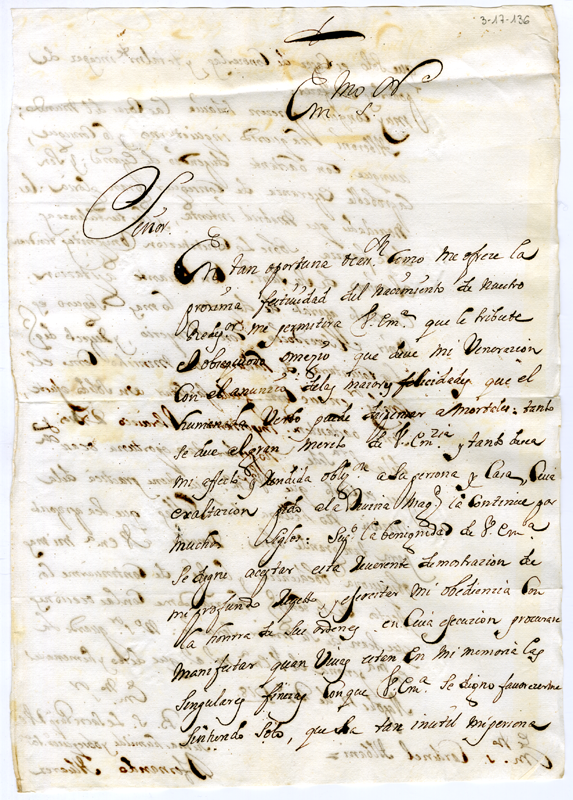 3-17-136
Emo Sr
Señor.
En tan oportuna ocen. como me ofrece la
proxima festiuidad del nacimiento de nuestro
Redepr. me permitira Va. Ema. que le tribute
el obsequioso omenio que deue mi Veneracion
con el anuncio de las maiores felicidades que el
humanado Verbo puede dispensar a mortales: tanto
se deue al gran merito de Va. Emzia y tanto desea
mi afecto y Rendida obligon. a su persona y Casa, Cuia
exaltacion pido al Diuina Magd. la continue por
muchos siglos: la benignidad de Va. Ema.
se digne aceptar esta Reuerente demostrazion de
mi profundo Respeto y exercitar mi obediencia con
la honrra de sus ordenes en Cuia execucion procurare
manifestar quan Viuas esten en mi memoria las
singulares finezas con que Va. Ema. se digno fauorezerme
sintiendo solo, que sea tan inutil mi persona